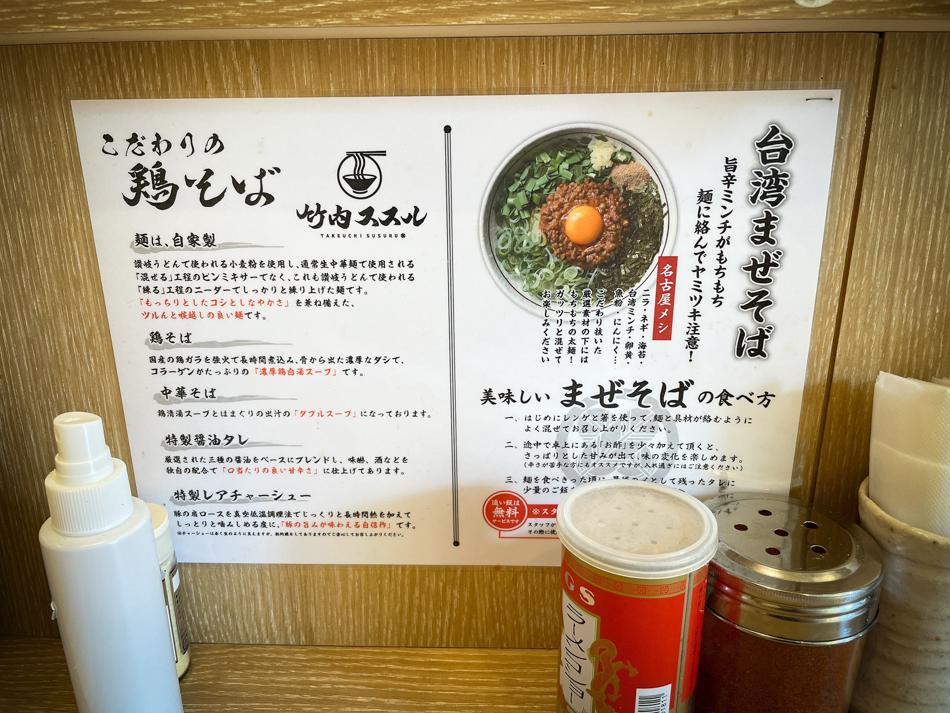 こだわりの
鶏そば
竹内ススル
TAKEUCHI SUSURU
麺は、自家製
讃岐うどんで使われる小麦粉を使用し、通常生中華麺で使用される
「混ぜる」工程のピンミキサーでなく、これも讃岐うどんで使われる
「練る」工程のニーダーでしっかりと練り上げた麺です。
「もっちりとしたコシとしなやかさ」を兼ね備えた、
ツルんと喉越しの良い麺です。
鶏そば
国産の鶏ガラを強火で長時間煮込み、骨から出た濃厚なダシで、
コラーゲンがたっぷりの「濃厚鶏白湯スープ」です。
中華そば
鶏清湯スープとはまぐりの出汁の「ダブルスープ」になっております。
特製醤油タレ
厳選された三種の醤油をベースにブレンドし、味醂、酒などを
独自の配合で「口当たりの良い甘辛さ」に仕上げてあります。
特製レアチャーシュー
豚の肩ロースを真空低温調理法でじっくりと長時間熱を加えて
しっとりと噛みしめる度に、「豚の旨みが味わえる自信作」です。
台湾まぜそば
旨辛ミンチがもちもち
麺に絡んでヤミツキ注意!
名古屋メシ
ニラ・ネギ・海苔・
台湾ミンチ・卵黄・
魚粉・にんにく…
こだわり抜いた
厳選素材の下には
もちもちの太麺!
ガッツリと混ぜて
お楽しみください
美味しいまぜそばの食べ方
一、はじめにレンゲと箸を使って、麺と具材が絡むように
よく混ぜてお召し上がりください。
二、途中で卓上にある「お酢」を少々加えて頂くと、
さっぱりとした甘みが出て、味の変化を楽しめます。
(辛さが苦手な方にもオススメですが、入れ過ぎにはご注意ください)
三、麺を食べきった頃に、
として残ったタレに
少量のご飯
追い飯は
無料
サービスです
※スタ
スタッフが
その際に
GS
ラーメンコショー